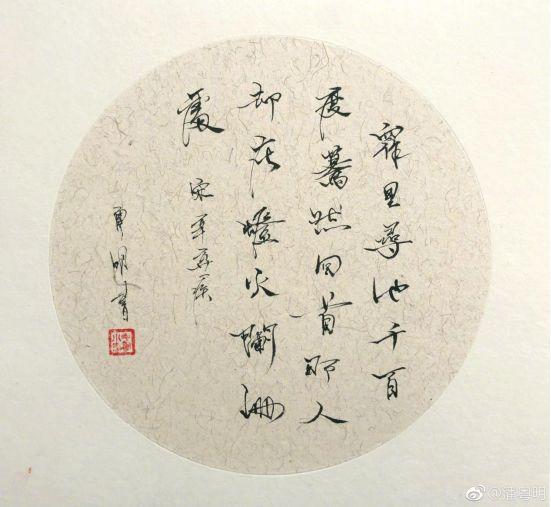 眾里尋他千百
度驀然回首那人
却在燈火闌珊
處 宋辛弃疾
粤明書
@潘粤明